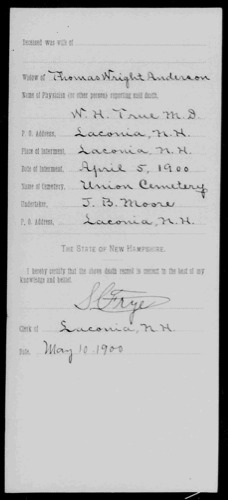 Deceased was wife of
Widow of Thomas Wright Anderson
Name of Physician (or other person) reporting said death,
W. H. True M.D.
P. O. Address, Laconia, N.H.
Place of Interment, Laconia, N.H.
Date of Interment, April 5, 1900
Name of Cemetery, Union Cemetery
Undertaker, J. B. Moore
P. O. Address, Laconia, N.H.
THE STATE OF NEW HAMPSHIRE.
I hereby certify that the above death record is correct to the best of my
knowledge and belief.
S C Frye
Clerk of Laconia, N.H.
Date, May 10 1900